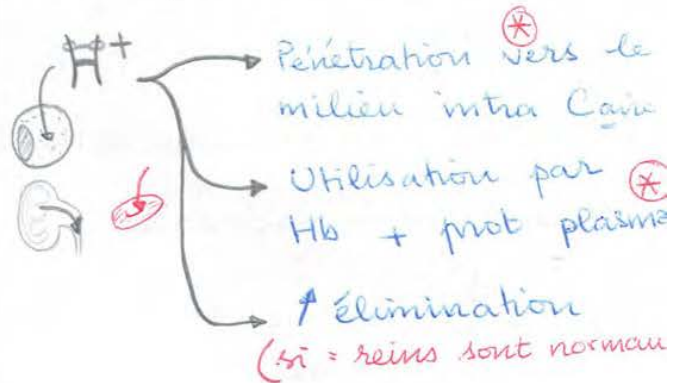 H+
Pénétration vers le
milieu intra Caire
Utilisation par
Hb + prot plasma
↑ élimination
(si = reins sont normau